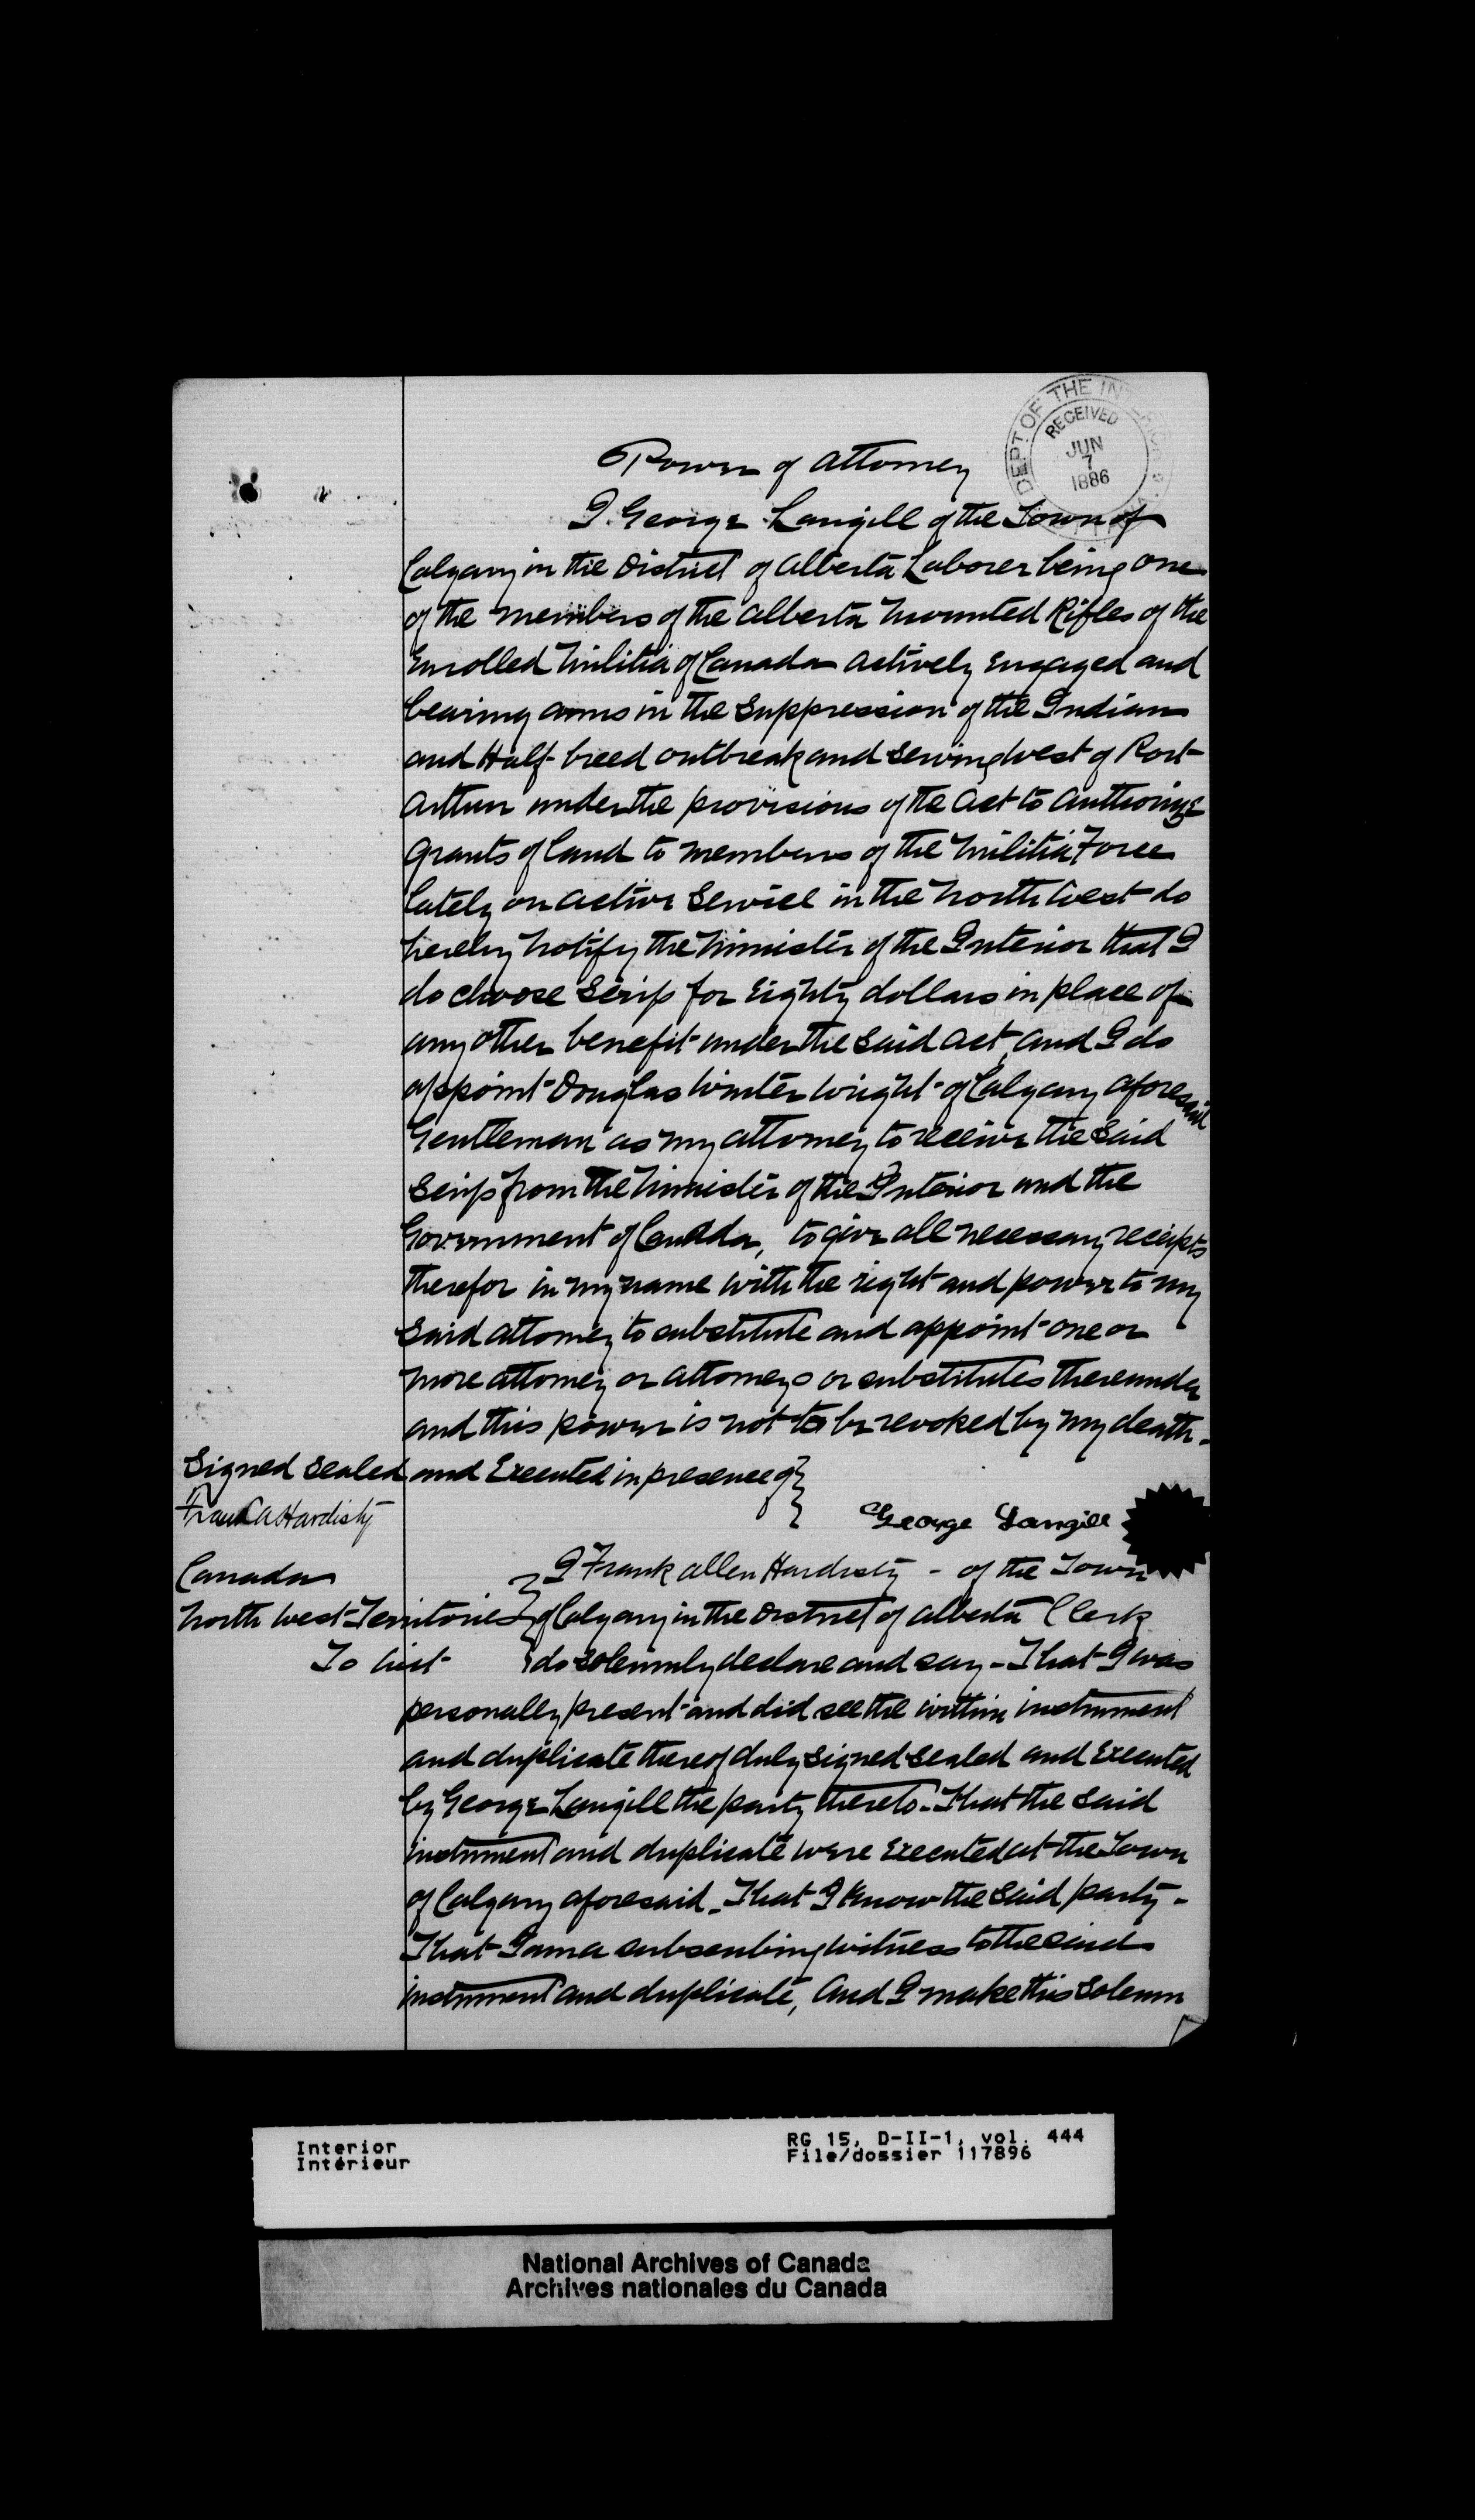 DEPT OF THE INTERIOR
RECEIVED
JUN
7
1886
Power of Attorney
I George Langill of the Town of
Calgary in the District of Alberta Laborer being one
of the members of the Alberta Mounted Rifles of the
Enrolled Militia of Canada actively engaged and
bearing arms in the Suppression of the Indian
and Half-breed outbreak and serving West of Port
Arthur under the provisions of the Act to authorize
grants of land to members of the Militia Force
lately on active Service in the North West do
hereby notify the Minister of the Interior that I
do choose Scrip for Eighty dollars in place of
any other benefit under the said Act, and I do
appoint Douglas Winter Wright of Calgary aforesaid
Gentleman as my attorney to receive the said
Scrip from the Minister of the Interior and the
Government of Canada, to give all necessary receipts
therefor in my name with the right and power to my
said attorney to substitute and appoint one or
more attorney or attorneys or substitutes thereunder
and this power is not to be revoked by my death.
Signed Sealed and Executed in presence of
Frank A Hardisty
George Langill
Canada
North West Territories
To Wit
I Frank Allen Hardisty - of the Town
of Calgary in the District of Alberta Clerk
do solemnly declare and say - That I was
personally present and did see the within instrument
and duplicate thereof duly signed sealed and Executed
by George Langill the party thereto. That the said
instrument and duplicate were Executed at the Town
of Calgary aforesaid. That I know the said party -
That I am a subscribing witness to the said
instrument and duplicate, And I make this Solemn
Interior
Intérieur
RG 15, D-II-1, vol. 444
File/dossier 117896
National Archives of Canada
Archives nationales du Canada